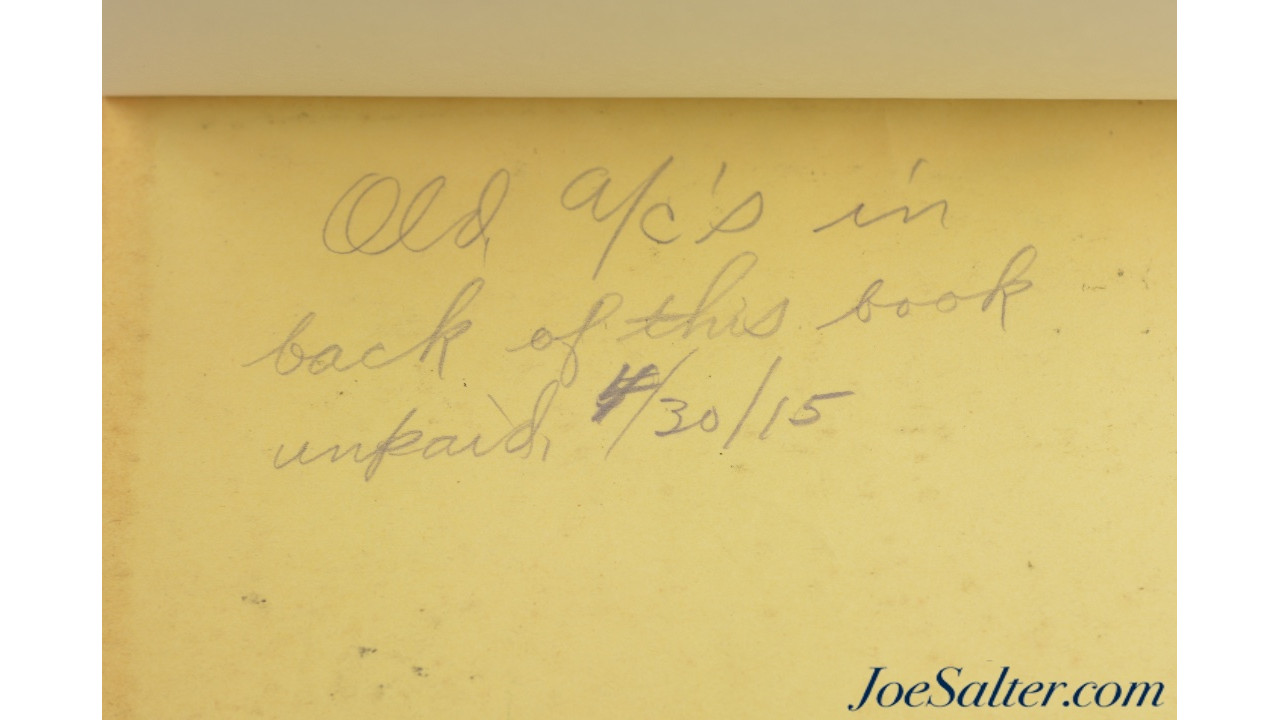 Old a/c's in
back of this book
unpaid, 4/30/15
JoeSalter.com